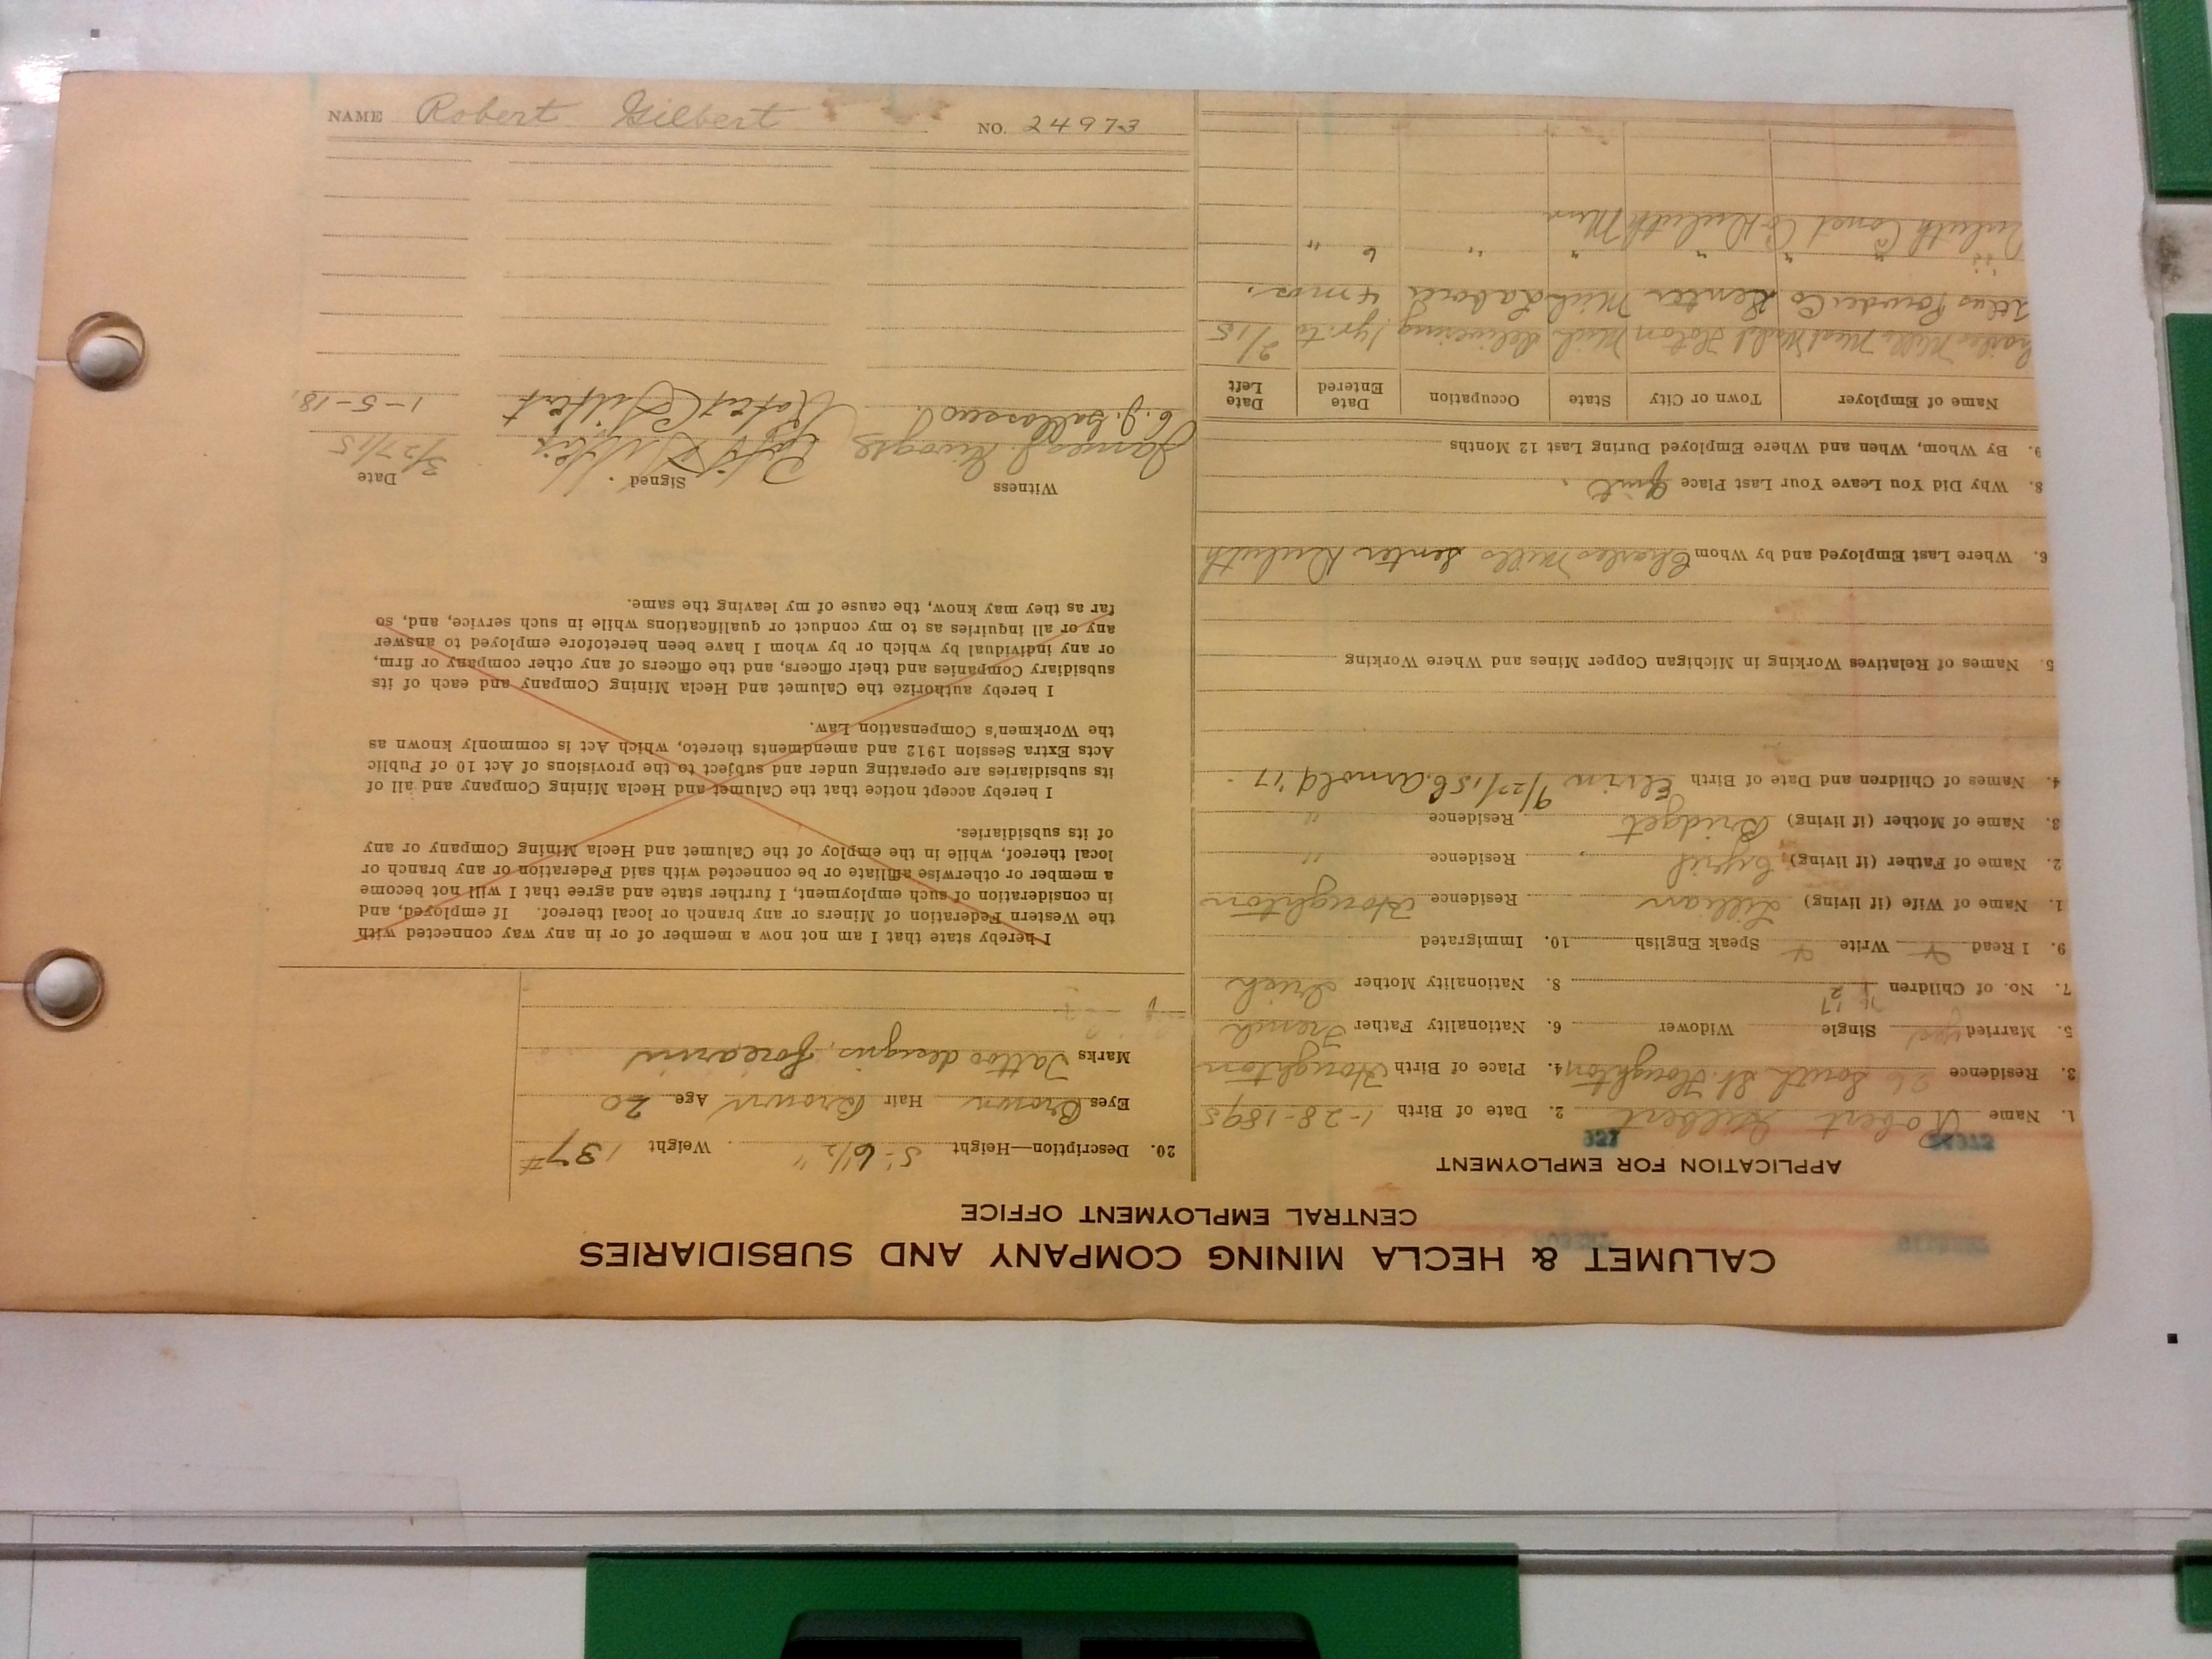 CALUMET & HECLA MINING COMPANY AND SUBSIDIARIES
CENTRAL EMPLOYMENT OFFICE
APPLICATION FOR EMPLOYMENT
1. Name Robert Gilbert 2. Date of Birth 1-28-1895
3. Residence 26 South St. Houghton, 4. Place of Birth Houghton
5. Married yes Single Widower 6. Nationality Father French
7. No. of Children 2 '17 8. Nationality Mother Irish
9. I Read Write Speak English 10. Immigrated
1. Name of Wife (if living) Lillian Residence Houghton
2. Name of Father (if living) Cyril Residence "
3. Name of Mother (if living) Bridget Residence "
4. Names of Children and Date of Birth Elvin 9/27/15 Arnold '17
5. Names of Relatives Working in Michigan Copper Mines and Where Working
6. Where Last Employed and by Whom Charles Mills Senter Duluth
8. Why Did You Leave Your Last Place Quit.
9. By Whom, When and Where Employed During Last 12 Months
Name of Employer Town or City State Occupation Date Entered Date Left
Mills Meat Market Hoton Mich delivering 1 yr. to 2/15
Powder Co Senter Mich Labor 4 mos.
" " " " " 6 "
Duluth Const Co Duluth Minn
20. Description—Height 5'-6 1/2" Weight 137#
Eyes Brown Hair Brown Age 20
Marks Tattoo designs, forearms
I hereby state that I am not now a member of or in any way connected with
the Western Federation of Miners or any branch or local thereof. If employed, and
in consideration of such employment, I further state and agree that I will not become
a member or otherwise affiliate or be connected with said Federation or any branch or
local thereof, while in the employ of the Calumet and Hecla Mining Company or any
of its subsidiaries.
I hereby accept notice that the Calumet and Hecla Mining Company and all of
its subsidiaries are operating under and subject to the provisions of Act 10 of Public
Acts Extra Session 1912 and amendments thereto, which Act is commonly known as
the Workmen's Compensation Law.
I hereby authorize the Calumet and Hecla Mining Company and each of its
subsidiary Companies and their officers, and the officers of any other company or firm,
or any individual by which or by whom I have been heretofore employed to answer
any or all inquiries as to my conduct or qualifications while in such service, and, so
far as they may know, the cause of my leaving the same.
Witness Signed Date
James 3/27/15
C. J. Robert Gilbert 1-5-18,
NAME Robert Gilbert NO. 24973